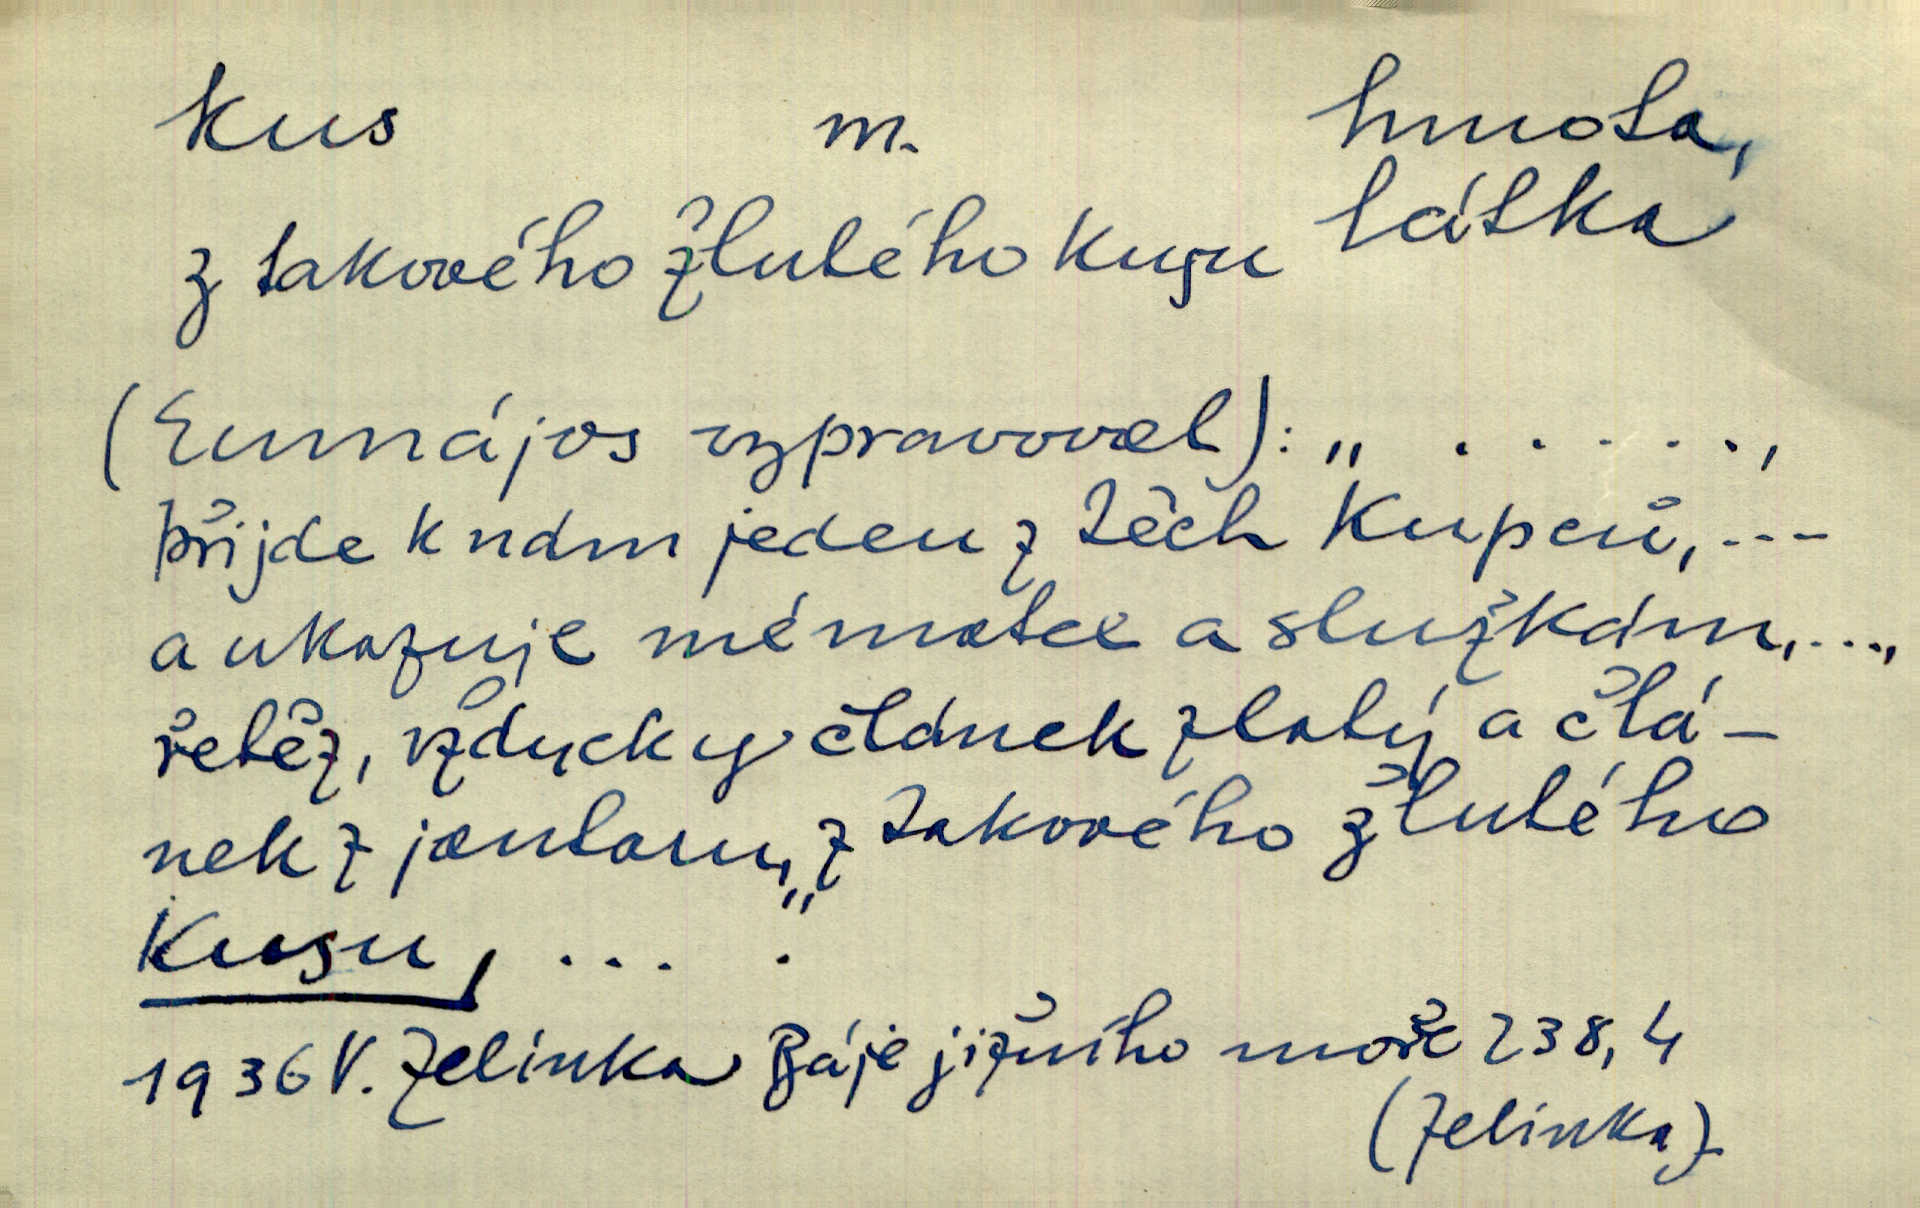 kus m. hmota,
látka
z takového žlutého kusu
(Eumájos vypravoval): „ . . . . . ,
přijde k nám jeden z těch kupců, ---
a ukazuje mé matce a služkám, ...,
řetěz, vždycky článek zlatý a člá-
nek z jantaru, z takového žlutého
kusu, ... . "
1936 V. Zelinka Báje jižního moře 238, 4
(Zelinka)